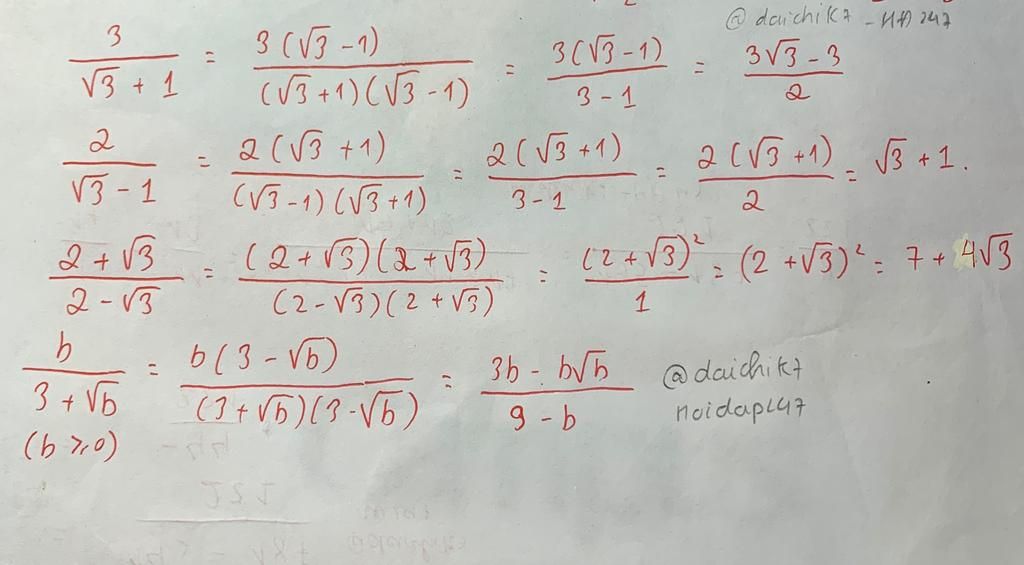 @daichik7 - HĐ 247
3/(√3 + 1) = 3(√3 - 1)/((√3+1)(√3-1)) = 3(√3-1)/(3-1) = (3√3-3)/2
2/(√3-1) = 2(√3+1)/((√3-1)(√3+1)) = 2(√3+1)/(3-1) = 2(√3+1)/2 = √3+1.
(2+√3)/(2-√3) = (2+√3)(2+√3)/((2-√3)(2+√3)) = (2+√3)²/1 = (2+√3)² = 7+4√3
b/(3+√b) = b(3-√b)/((3+√b)(3-√b)) = (3b-b√b)/(9-b)
(b ≥ 0)
@daichik7
hoidap247